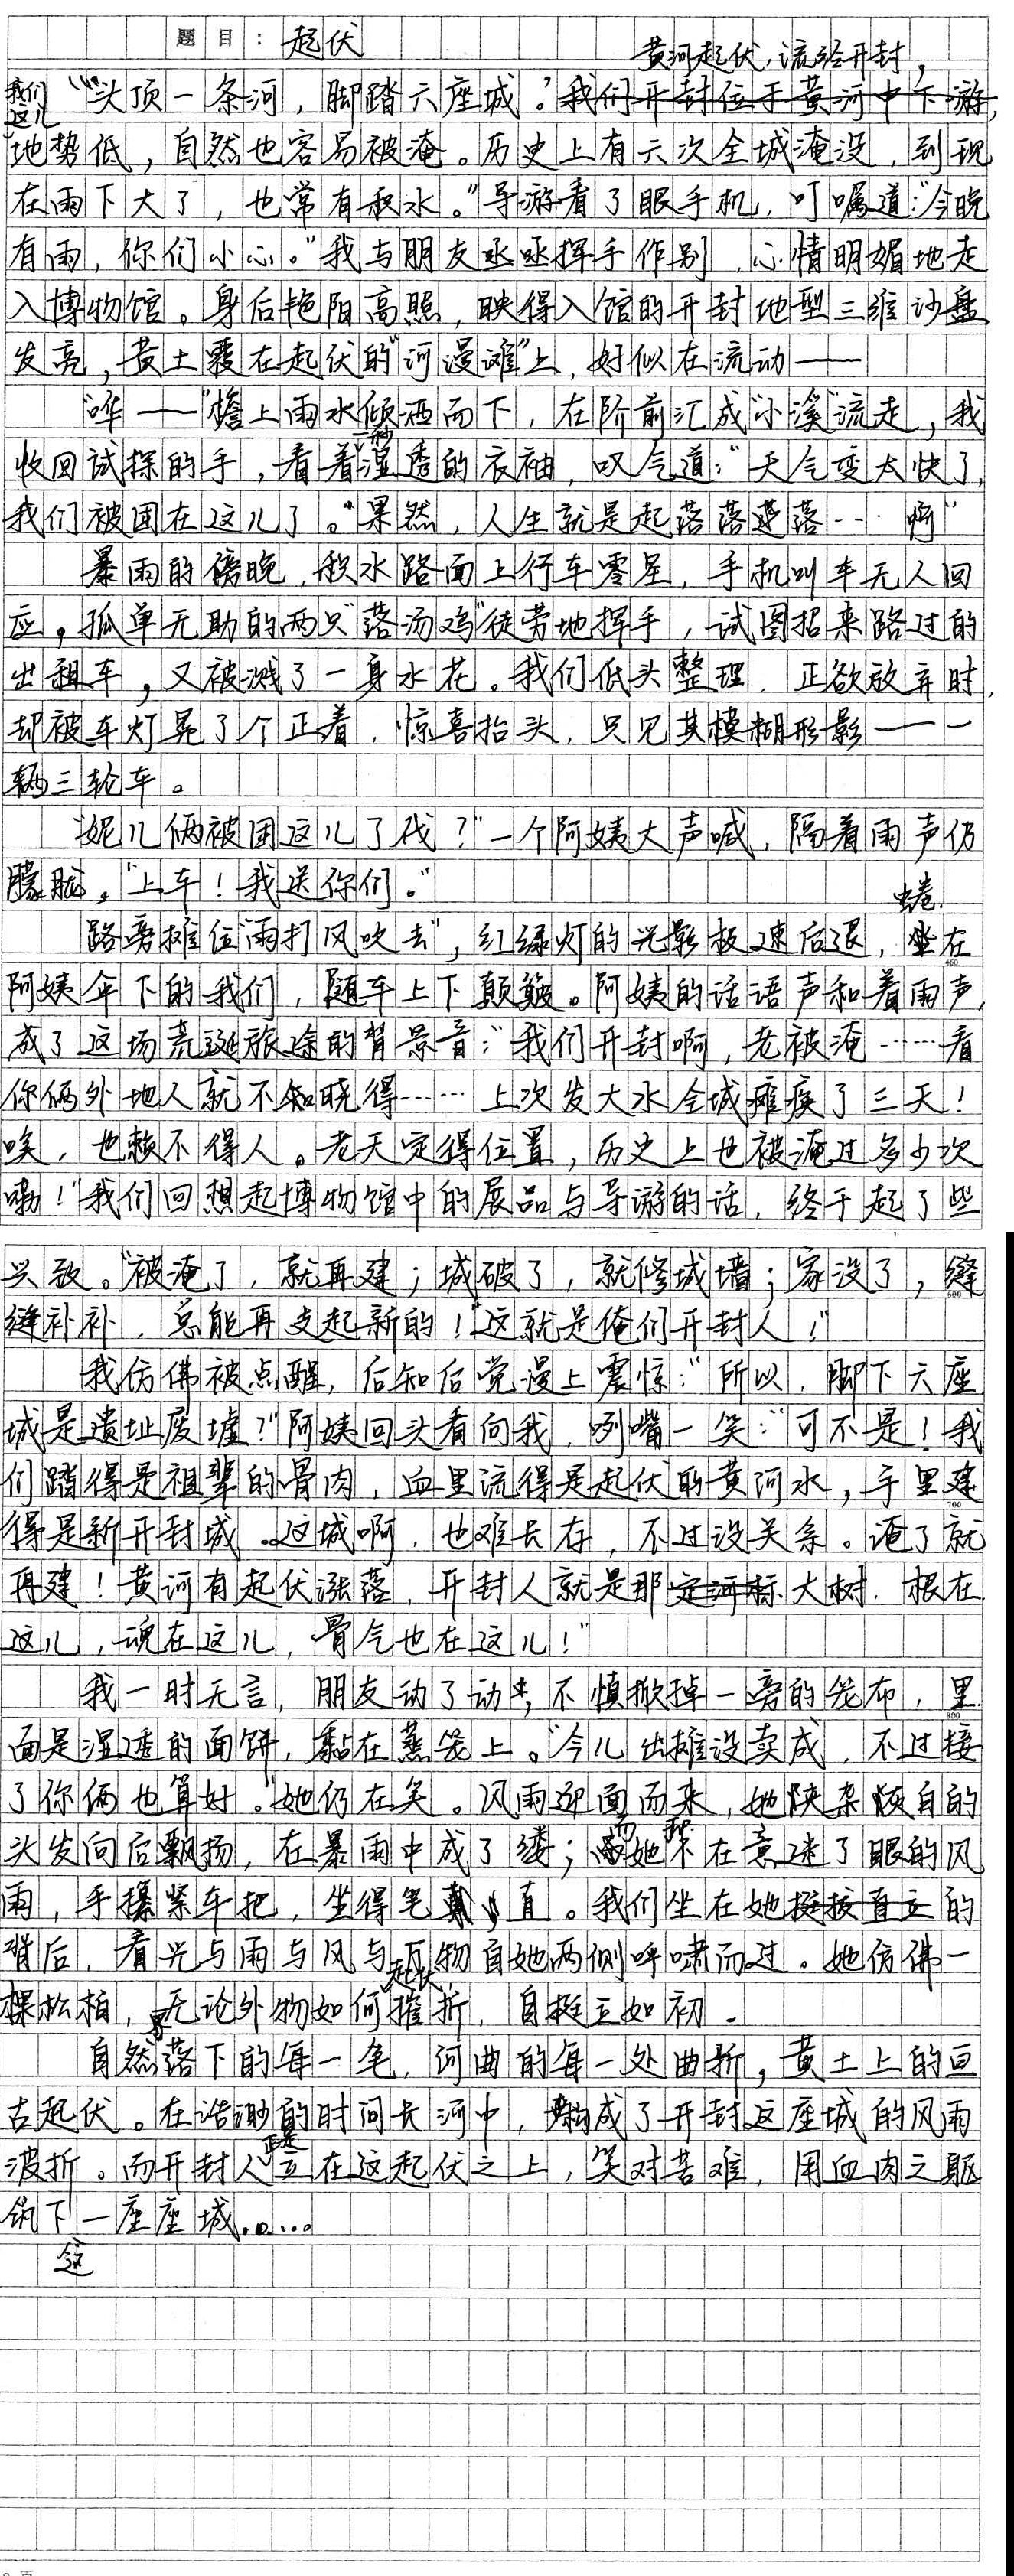 题目：起伏
黄河起伏，流经开封，
我们这儿
"“头顶一条河，脚踏六座城。”我们开封位于黄河中下游，
地势低，自然也容易被淹。历史上有六次全城淹没，到现
在雨下大了，也常有积水。"导游看了眼手机，叮嘱道："今晚
有雨，你们小心。"我与朋友丞丞挥手作别，心情明媚地走
入博物馆。身后艳阳高照，映得入馆的开封地型三维沙盘
发亮，黄土覆在起伏的"河漫滩"上，好似在流动——
"哗——"檐上雨水倾洒而下，在阶前汇成"小溪"流走，我
一秒
收回试探的手，看着湿透的衣袖，叹气道："天气变太快了，
我们被困在这儿了。"果然，人生就是起落落落落……啊"
暴雨的傍晚，积水路面上行车零星，手机叫车无人回
应。孤单无助的两只"落汤鸡"徒劳地挥手，试图招来路过的
出租车，又被溅了一身水花。我们低头整理，正欲放弃时，
却被车灯晃了个正着，惊喜抬头，只见其模糊形影——一
辆三轮车。
"妮儿俩被困这儿了伐？"一个阿姨大声喊，隔着雨声仍
朦胧。"上车！我送你们。"
蜷
路旁摊位"雨打风吹去"，红绿灯的光影极速后退，坐在
阿姨伞下的我们，随车上下颠簸。阿姨的话语声和着雨声，
成了这场荒诞旅途的背景音："我们开封啊，老被淹……看
你俩外地人就不知晓得……上次发大水全城瘫痪了三天！
唉，也赖不得人。老天定得位置，历史上也被淹过多少次
嘞！"我们回想起博物馆中的展品与导游的话，终于起了些
兴致。"被淹了，就再建；城破了，就修城墙；家没了，缝
缝补补，总能再支起新的！"这就是俺们开封人！"
我仿佛被点醒，后知后觉漫上震惊："所以，脚下六座
城是遗址废墟？"阿姨回头看向我，咧嘴一笑："可不是！我
们踏得是祖辈的骨肉，血里流得是起伏的黄河水，手里建
得是新开封城。这城啊，也难长存，不过没关系。淹了就
再建！黄河有起伏涨落，开封人就是那定河标大树，根在
这儿，魂在这儿，骨气也在这儿！"
我一时无言，朋友动了动，不慎掀掉一旁的笼布，里
面是湿透的面饼，黏在蒸笼上。"今儿出摊没卖成，不过接
了你俩也算好。"她仍在笑。风雨迎面而来，她夹杂灰白的
而
头发向后飘扬，在暴雨中成了缕；她不在意迷了眼的风
雨，手攥紧车把，坐得笔直。我们坐在她挺拔直立的
背后，看光与雨与风与万物自她两侧呼啸而过。她仿佛一
起伏
棵松柏，无论外物如何摧折，自挺立如初。
自然落下的每一笔，河曲的每一处曲折，黄土上的亘
古起伏。在浩渺的时间长河中，构成了开封这座城的风雨
正是
波折。而开封人立在这起伏之上，笑对苦难，用血肉之躯
筑下一座座城……
这